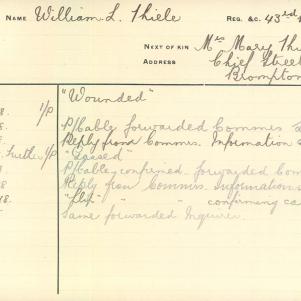 NAME William L. Thiele REG. &C. 43rd
NEXT OF KIN Mrs Mary Thi
ADDRESS Chief Street
Brompton
"Wounded"
8. 1/P
P/Cable forwarded Commis
8. Reply from Commis. Information
"Gassed"
Further 1/P
P/Cable confirmed forwarded Com
8 Reply from Commis. Information
18. " " confirming ca
Same forwarded Inquirer.